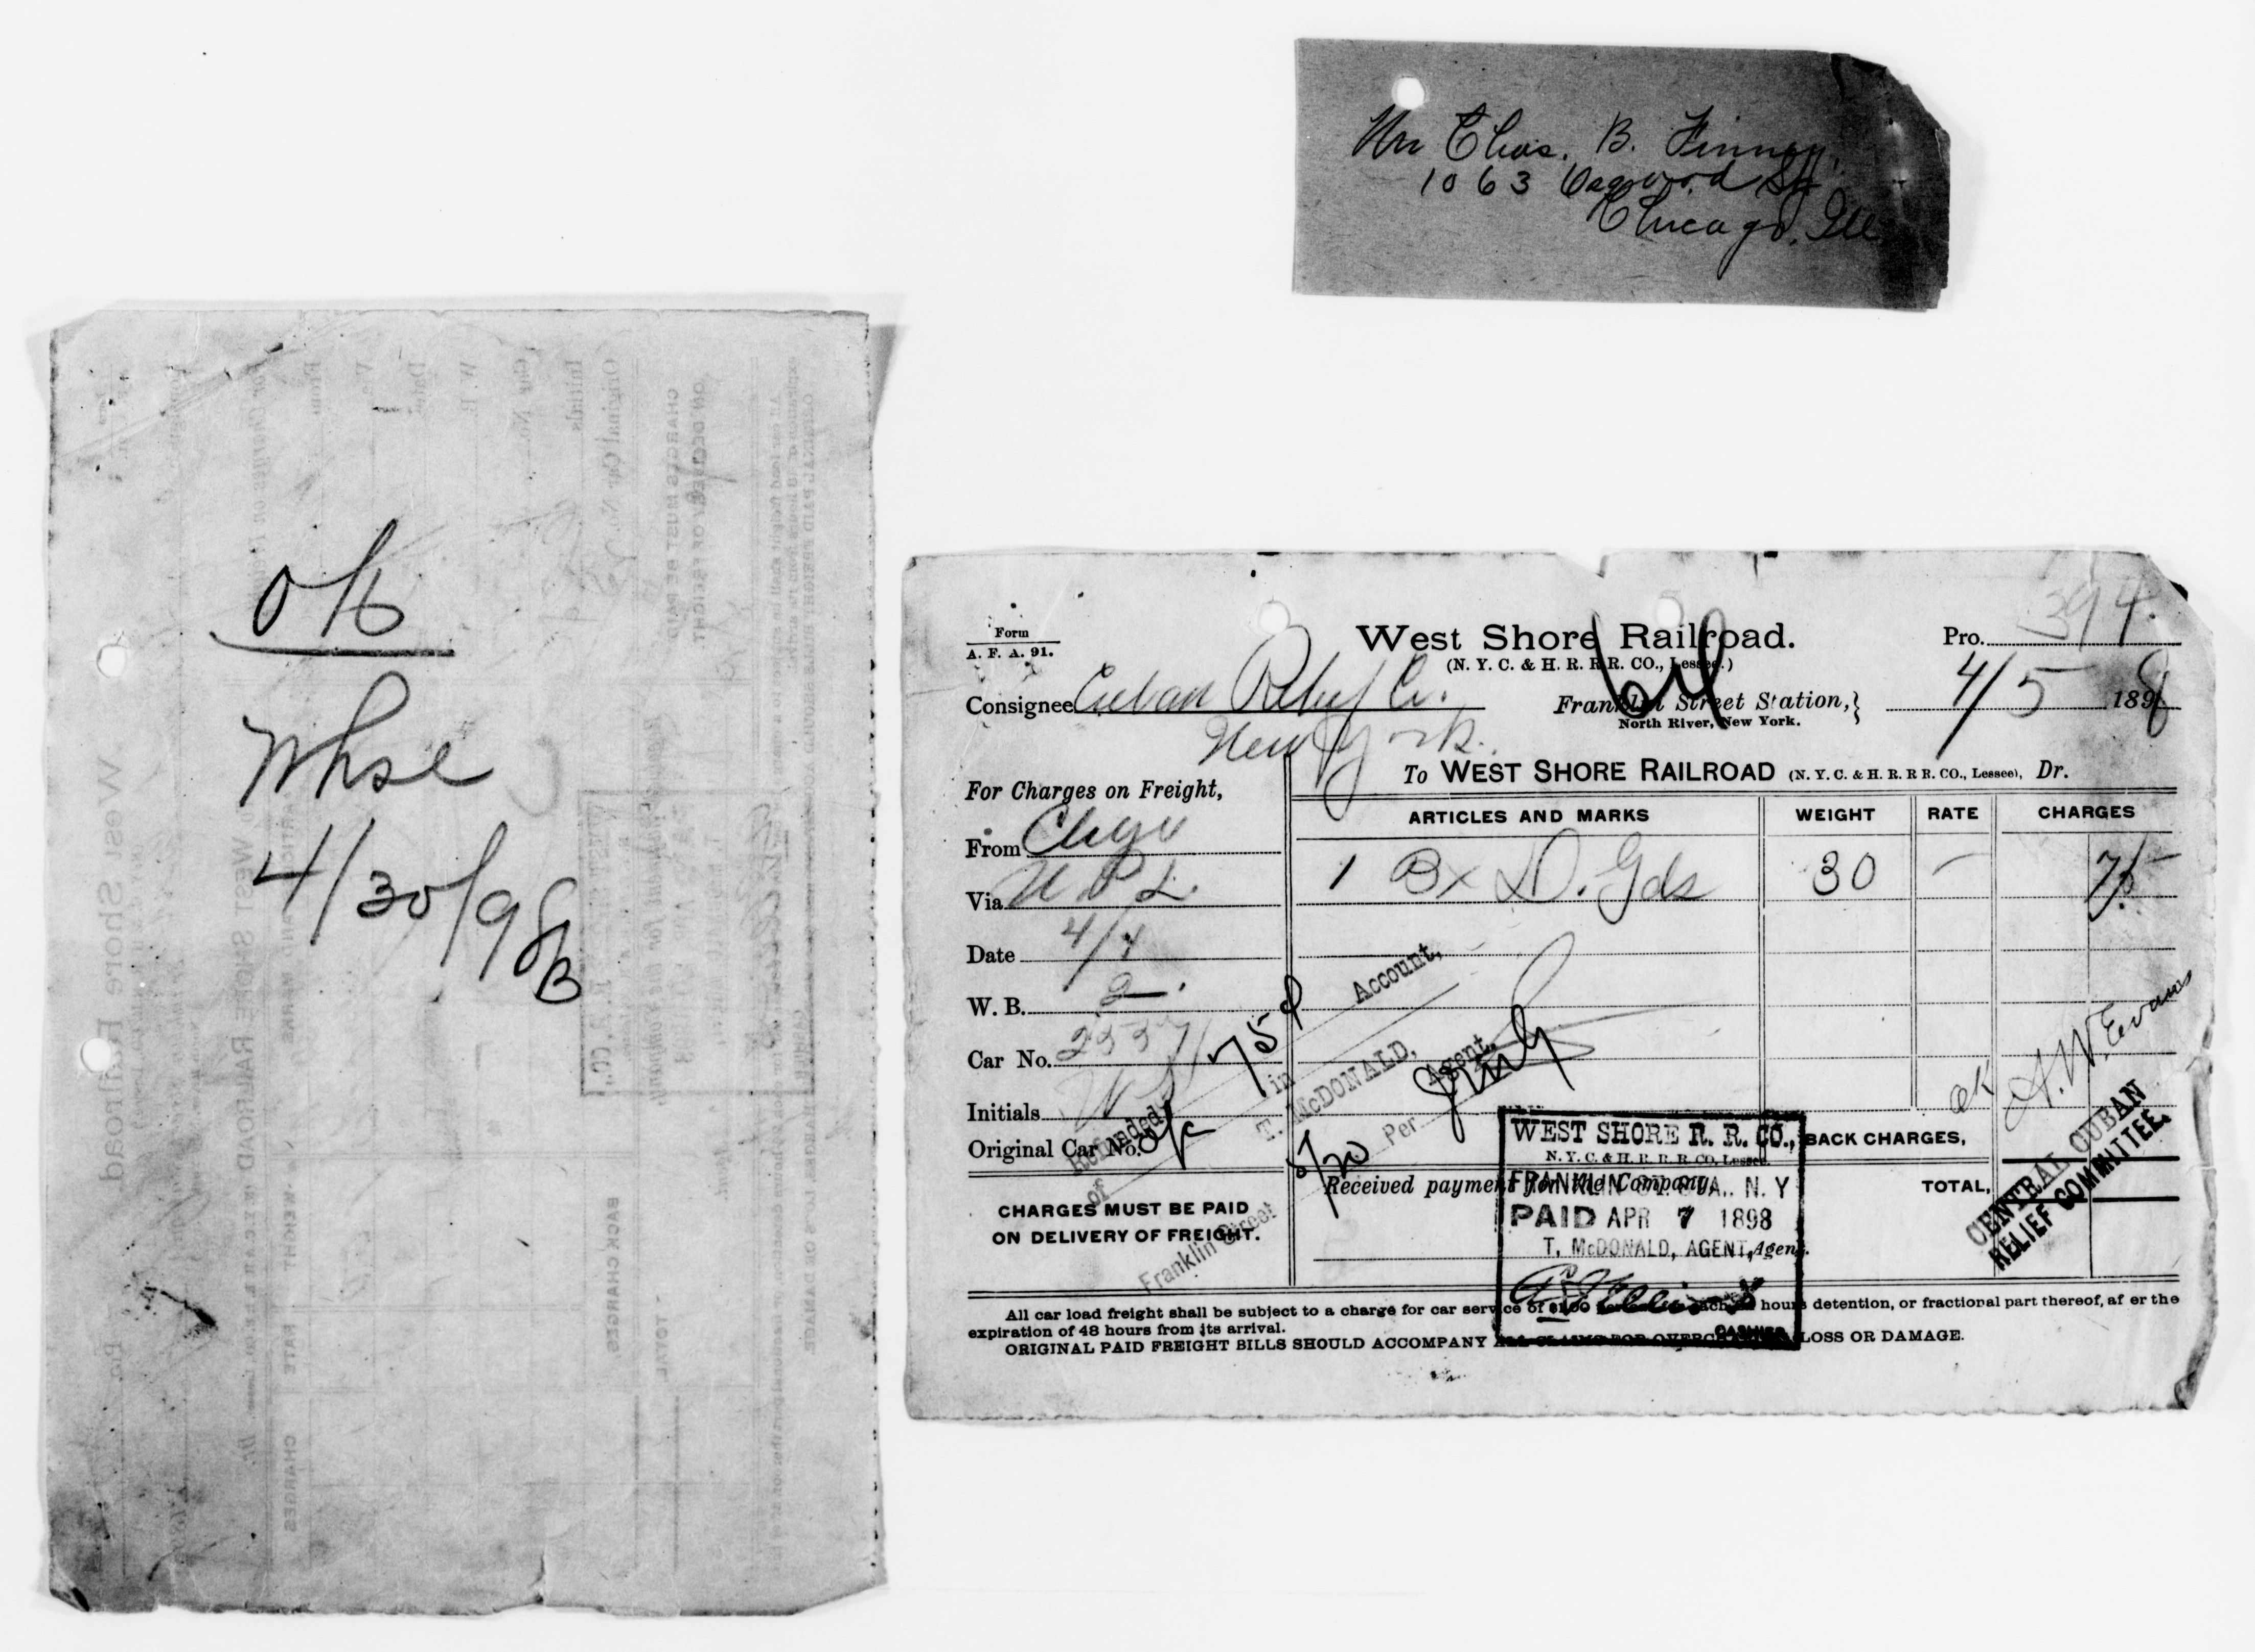 Mr Chas. B. Finney,
1063 Osgood St.
Chicago, Ill
OK
Whse
4/30/98
B
Form
A. F. A. 91.
West Shore Railroad.
(N. Y. C. & H. R. R.R. CO., Lessee.)
Pro. 394.
64
Consignee Cuban Relief Co.
New York.
Franklin Street Station,}
North River, New York.
4/5 1898
To WEST SHORE RAILROAD (N. Y. C. & H. R. R R. CO., Lessee), Dr.
For Charges on Freight,
ARTICLES AND MARKS WEIGHT RATE CHARGES
From Chgo
1 Bx D. Gds 30 — 75
Via
Date 4/4
W. B. 2.
Car No.
Initials
Original Car No.
Refunded 75¢ in Account,
of T. McDONALD, Agent,
Franklin Street
5/20 Per
OK A. W. Evans
CENTRAL CUBAN
RELIEF COMMITTEE.
BACK CHARGES,
TOTAL,
CHARGES MUST BE PAID
ON DELIVERY OF FREIGHT.
Received payment for the Company,
Agent.
WEST SHORE R. R. CO.,
N. Y. C. & H. R. R. R. CO. Lessee.
FRANKLIN ST. STA., N. Y
PAID APR 7 1898
T. McDONALD, AGENT,
CASHIER
All car load freight shall be subject to a charge for car service of $1.00 each hours detention, or fractional part thereof, af er the
expiration of 48 hours from its arrival.
ORIGINAL PAID FREIGHT BILLS SHOULD ACCOMPANY ALL CLAIMS FOR OVERCHARGE, LOSS OR DAMAGE.